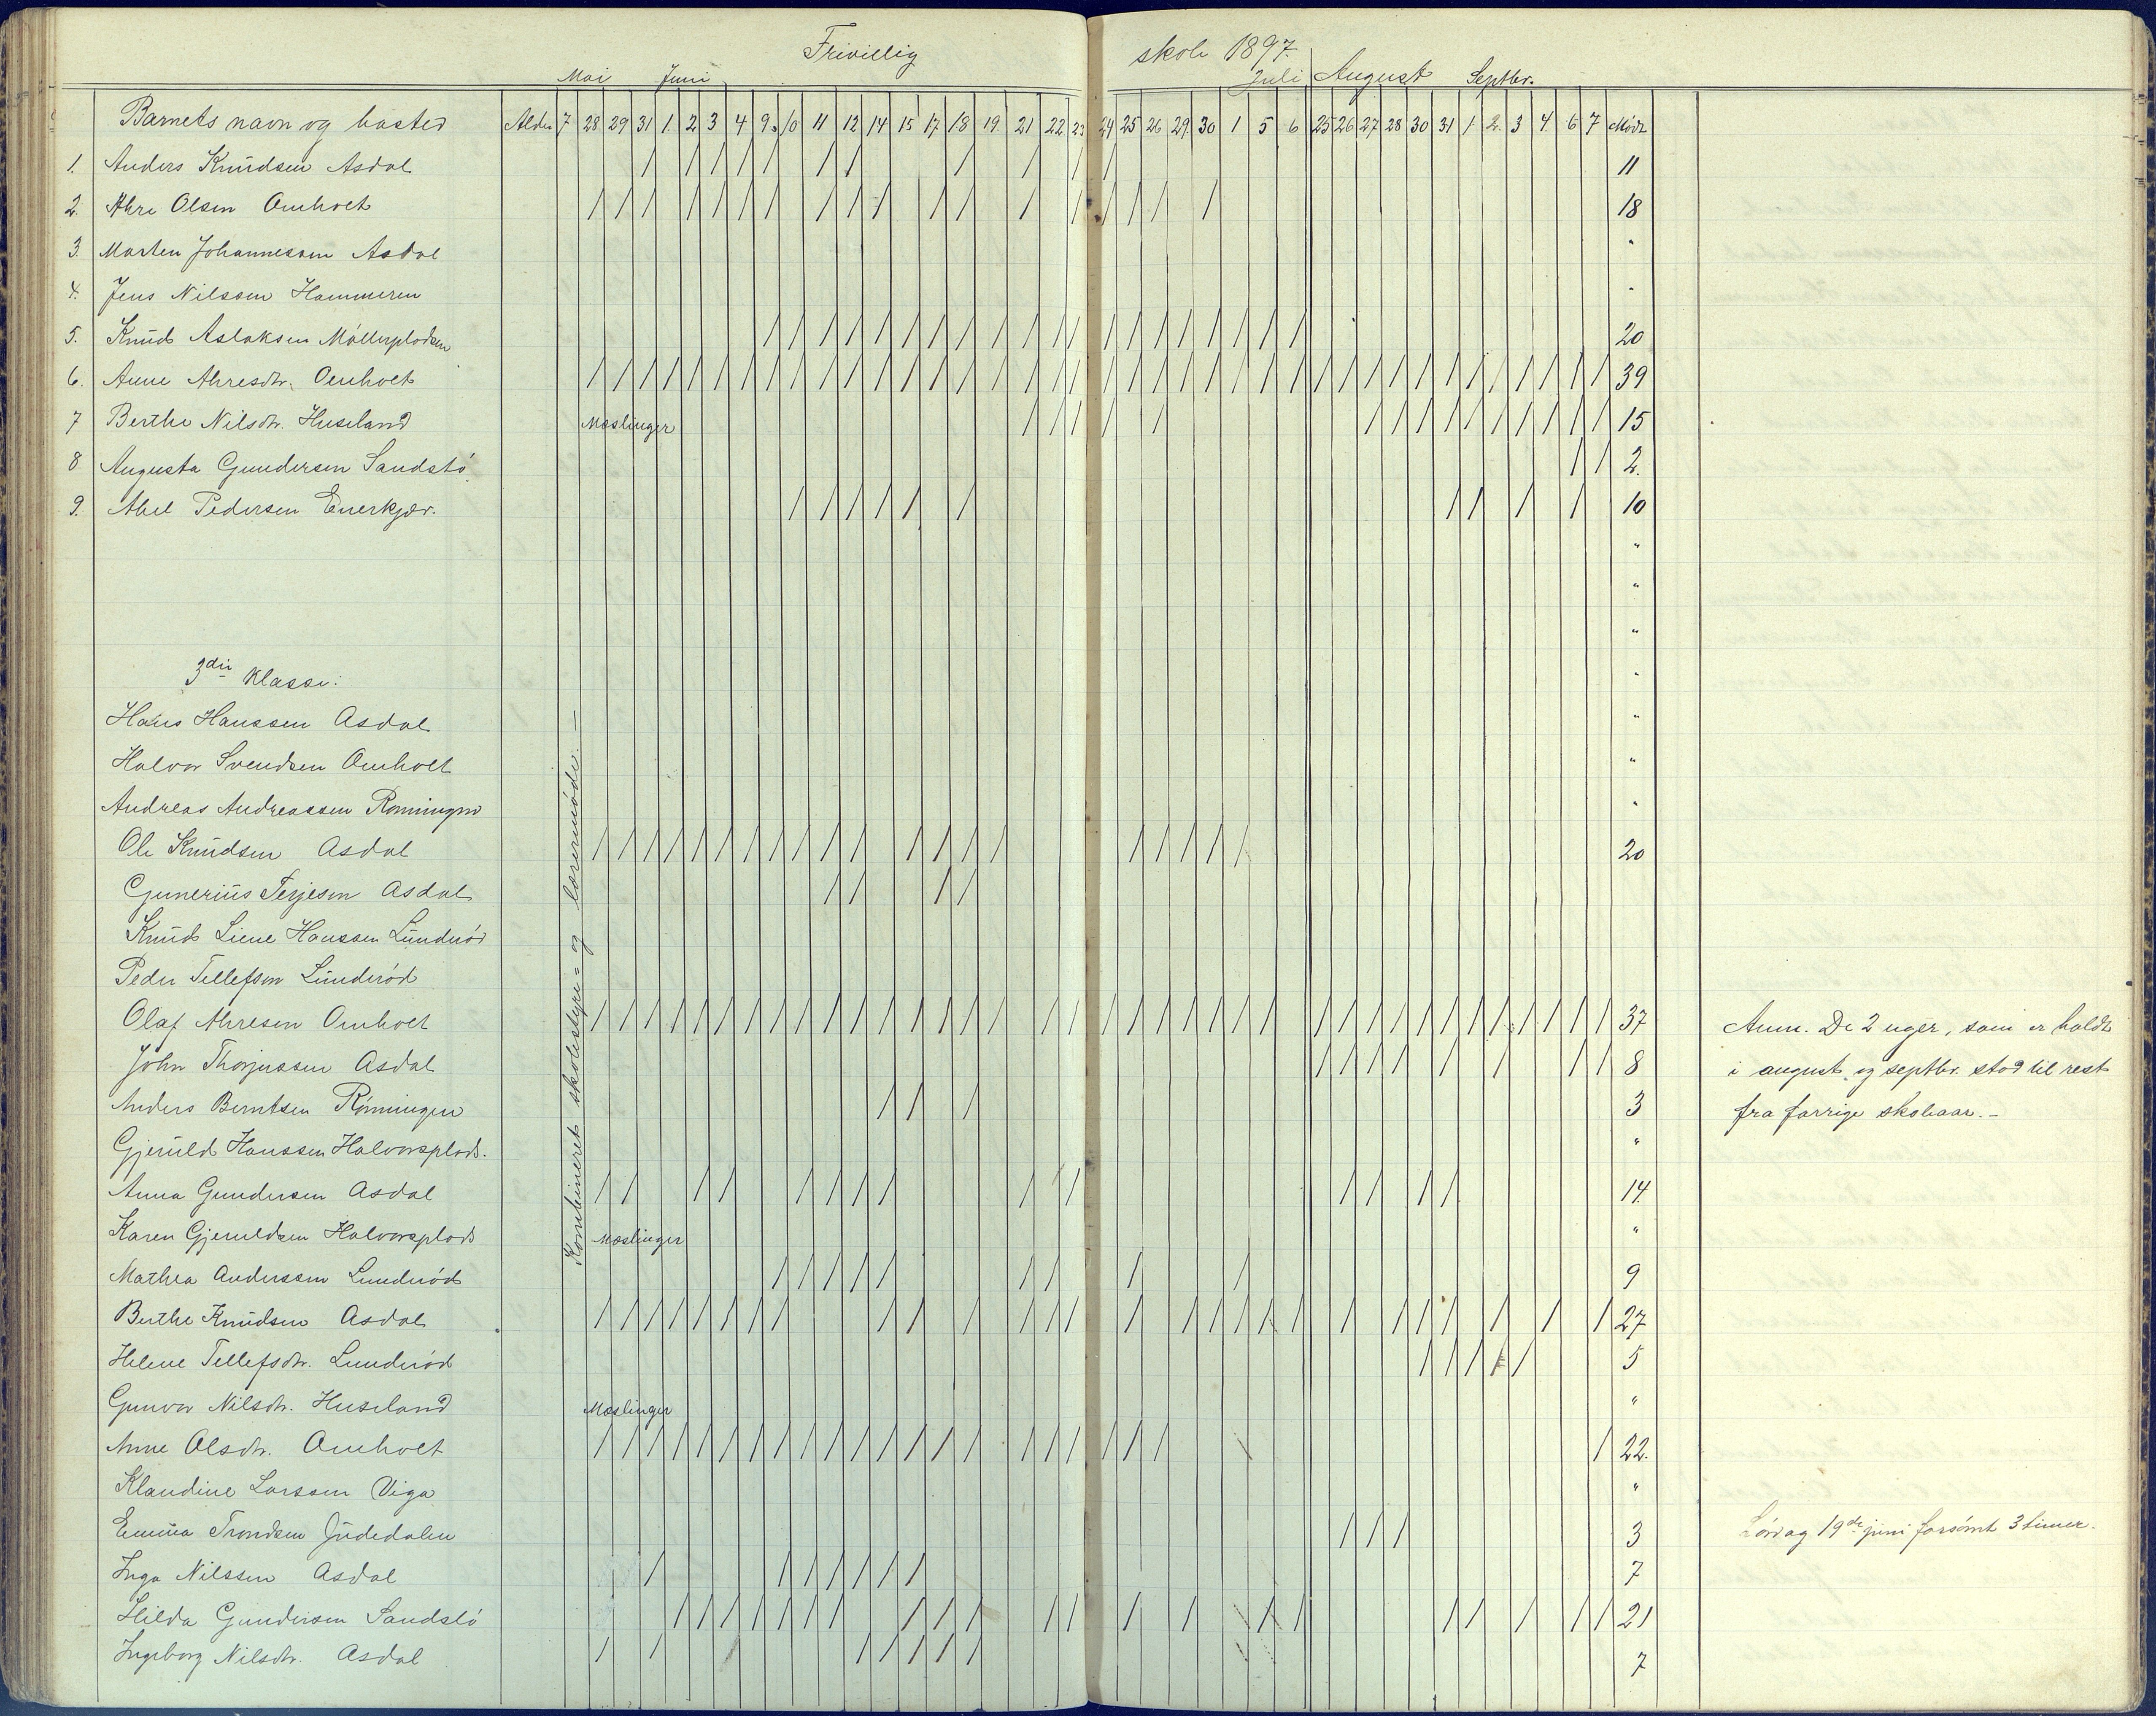 Frivillig skole 1897.
Mai Juni Juli August Septbr.
Barnets navn og bosted Alder 7 28 29 31 1 2 3 4 9 10 11 12 14 15 17 18 19 21 22 23 24 25 26 29 30 1 5 6 25 26 27 28 30 31 1 2 3 4 6 7 Mødt
1. Anders Knudsen Asdal / / / / / / / / / / / 11
2. Ahre Olsen Omholt / / / / / / / / / / / / / / / / / / 18
3. Morten Johannessen Asdal "
4. Jens Nilssen Hammeren "
5. Knud Aslaksen Møllerpladsen / / / / / / / / / / / / / / / / / / / / 20
6. Anne Ahresdtr. Omholt / / / / / / / / / / / / / / / / / / / / / / / / / / / / / / / / / / / / / / / 39
7 Berthe Nilsdtr. Huseland Mæslinger / / / / / / / / / / / / / / / 15
8 Augusta Gundersen Sandstø / / 2.
9. Abel Pedersen Enerkjær. / / / / / / / / / / 10
"
"
"
3die Klasse: "
Hans Hanssen Asdal "
Halvor Svendsen Omholt "
Andreas Andreassen Rønningen "
Ole Knudsen Asdal / / / / / / / / / / / / / / / / / / / / 20
Gunerius Terjesen Asdal / / / /
Knud Liene Hanssen Lunderød
Peder Tellefsen Lunderød
Olaf Ahresen Omholt / / / / / / / / / / / / / / / / / / / / / / / / / / / / / / / / / / / / / 37 Anm. De 2 uger, som er holdt
John Thorjussen Asdal / / / / / / / / 8 i august og septbr. stod til rest
Anders Berntsen Rønningen / / / 3 fra forrige skoleaar. –
Gjeruld Hanssen Halvorsplads. "
Anna Gundersen Asdal / / / / / / / / / / / / / / 14.
Karen Gjeruldsen Halvorsplads Mæslinger "
Mathea Anderssen Lunderød / / / / / / / / / 9
Berthe Knudsen Asdal / / / / / / / / / / / / / / / / / / / / / / / / / / / 27
Helene Tellefsdtr. Lunderød / / / / / 5
Gunvor Nilsdtr. Huseland Mæslinger "
Anne Olsdtr. Omholt / / / / / / / / / / / / / / / / / / / / / / 22.
Klaudine Larssen Viga "
Emma Trondsen Judedalen / / / 3 Lørdag 19de juni forsømt 3 timer.
Inga Nilssen Asdal / / / / / / / 7
Hilda Gundersen Sandslø / / / / / / / / / / / / / / / / / / / / / 21
Ingeborg Nilsdtr. Asdal / / / / / / / 7
Kombineret skolestyre= og lærermøde. –